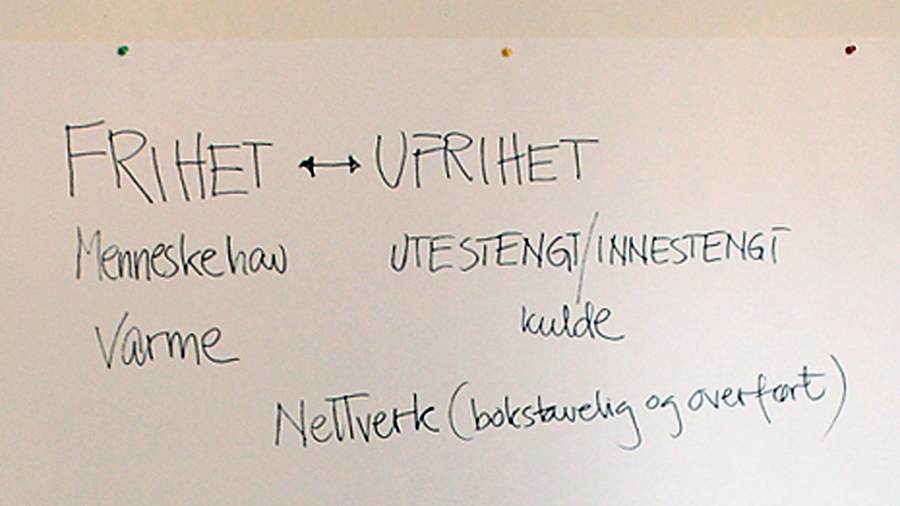 FRIHET ↔ UFRIHET
Menneskehav UTESTENGT/INNESTENGT
Varme kulde
Nettverk (bokstavelig og overført)